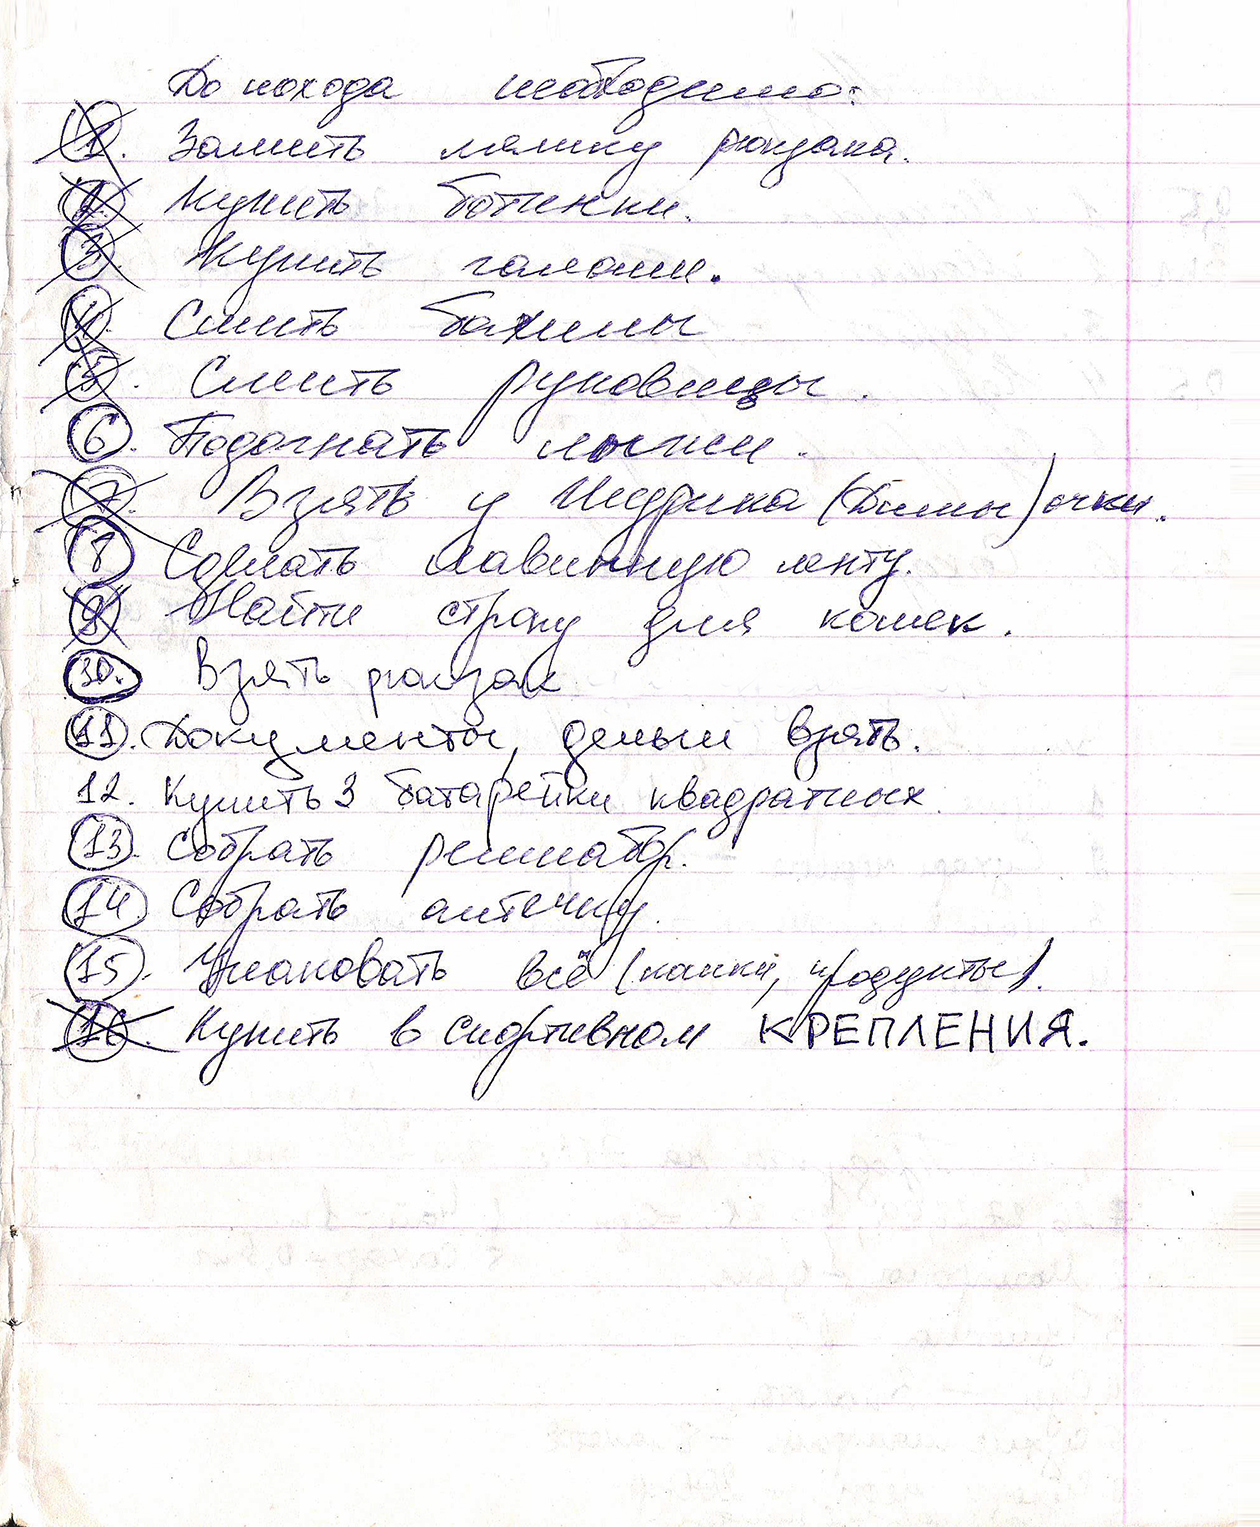 До похода необходимо:
1. Зашить лямку рюкзака.
2. Купить ботинки.
3. Купить галоши.
4. Сшить бахилы
5. Сшить рукавицы.
6. Подогнать лыжи.
7. Взять у Шедрика (Димы) очки.
8 Сделать лавинную ленту.
9 Найти стропу для кошек.
10. Взять рюкзак
11. Документы, деньги взять.
12. Купить 3 батарейки квадратных.
13. Собрать ремнабор.
14 Собрать аптечку.
15. Упаковать всё (каны, продукты).
16. Купить в спортивном КРЕПЛЕНИЯ.